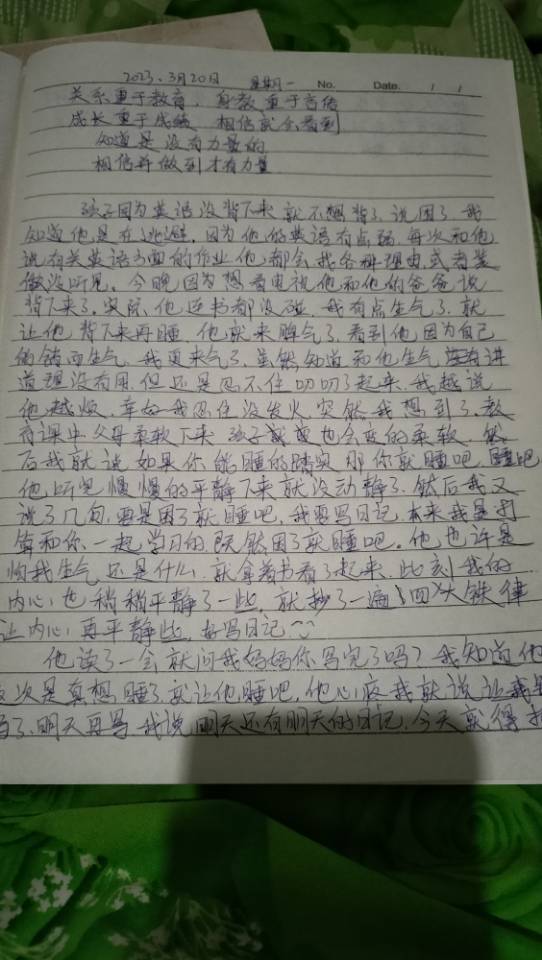 2023、3月20日 星期一 No. Date. / /
关系重于教育，身教重于言传
成长重于成绩 相信就会看到
知道是没有力量的
相信并做到才有力量
孩子因为英语没背下来就不想背了、说困了、我
知道他是在逃避，因为他的英语有点弱，每次和他
说有关英语方面的作业他都会找各种理由或者装
做没听见。今晚因为想看电视他和他的爸爸说
背下来了，实际他连书都没碰，我有点生气了，就
让他背下来再睡，他就来脾气了，看到他因为自己
的错而生气，我更来气了，虽然知道和他生气没有讲
道理没有用，但还是忍不住叨叨了起来，我越说
他越烦，幸好我忍住没发火，突然我想到了，教
育课中父母柔软下来 孩子就也会变的柔软，然
后我就说如果你能睡的踏实那你就睡吧，睡吧
他听完慢慢的平静下来就没动静了，然后我又
说了几句，要是困了就睡吧，我要写日记，本来我是打
算和你一起学习的，既然困了就睡吧。他也许是
怕我生气还是什么，就拿着书看了起来，此刻我的
内心也稍稍平静了一些，就抄了一遍《四大铁律
让内心再平静些，好写日记
他读了一会就问我妈妈你写完了吗？我知道他
次是真想睡了，就让他睡吧，他心疼我就说让我
了，明天再写，我说明天还有明天的日记，今天就得